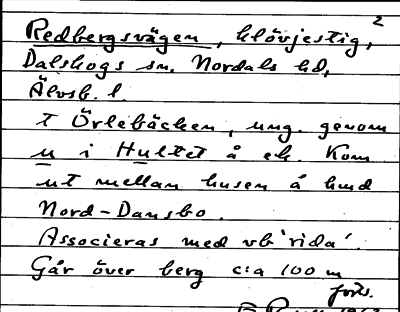 2
Redbergsvägen, klövjestig,
Dalskogs sn. Nordals hd,
Älvsb. l.
t Örlebäcken, ung. genom
u i Hultet å ek. Kom
ut mellan husen å hmd
Nord-Dansbo.
Associeras med vb 'rida'.
Går över berg c:a 100 m
forts.